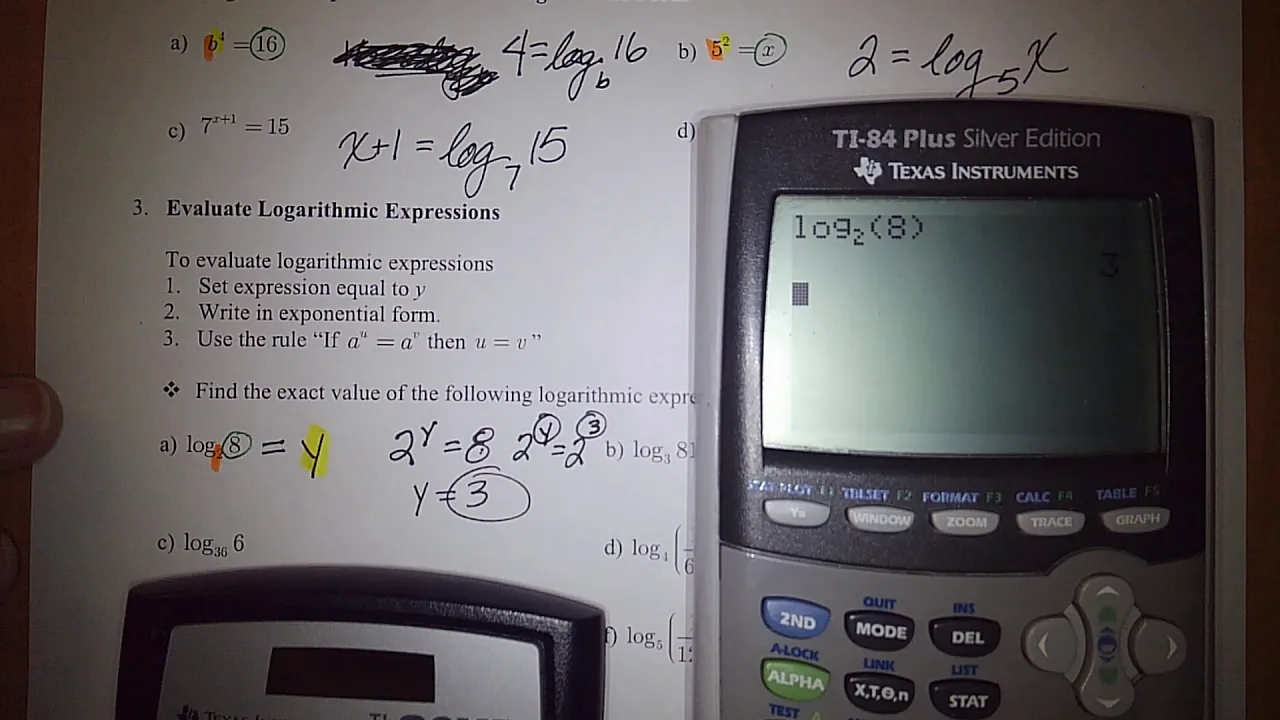 a) b⁴ = 16 4 = log_b 16 b) 5² = x 2 = log_5 x
c) 7^{x+1} = 15 x+1 = log_7 15 d)
3. Evaluate Logarithmic Expressions
To evaluate logarithmic expressions
1. Set expression equal to y
2. Write in exponential form.
3. Use the rule “If aᵘ = aᵛ then u = v”
❖ Find the exact value of the following logarithmic expre
a) log_2 8 = y 2^y = 8 2^y = 2^3 b) log_3 81
y = 3
c) log_36 6 d) log_4 (
6
f) log_5 (
TI-84 Plus Silver Edition
TEXAS INSTRUMENTS
log₂(8)
3
STAT PLOT F1 TBLSET F2 FORMAT F3 CALC F4 TABLE F5
Y= WINDOW ZOOM TRACE GRAPH
QUIT INS
2ND MODE DEL
A-LOCK LINK LIST
ALPHA X,T,Θ,n STAT
TEST A
TEXAS TI